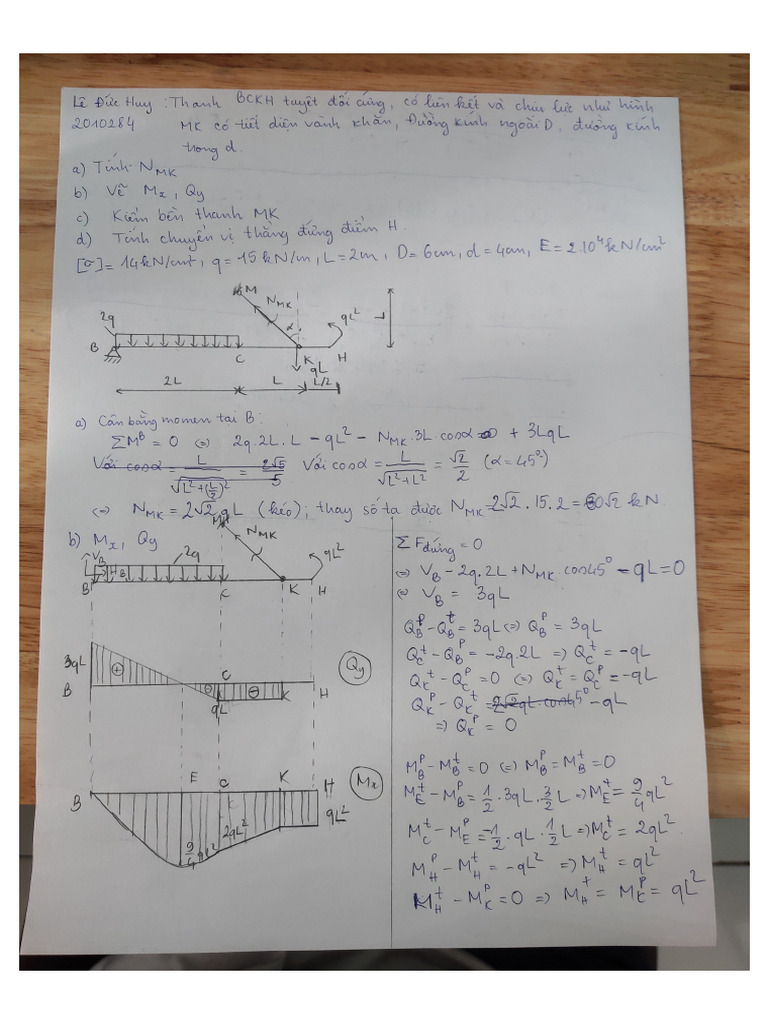 Lê Đức Huy : Thanh BCKH tuyệt đối cứng, có liên kết và chịu lực như hình
2010284 MK có tiết diện vành khăn, Đường kính ngoài D, đường kính
trong d.
a) Tính N_MK
b) Vẽ Mx, Qy
c) Kiểm bền thanh MK
d) Tính chuyển vị thẳng đứng điểm H.
[σ] = 14kN/cm², q = 15kN/m, L = 2m, D = 6cm, d = 4cm, E = 2.10⁴kN/cm²
M
N_MK
2q
α
qL²
L
B
C
K
H
qL
2L
L
L/2
a) Cân bằng momen tại B:
ΣM^B = 0 ⇔ 2q.2L.L - qL² - N_MK.3L.cosα = 0 + 3LqL
Với cosα = L/√(L²+(L/2)²) = 2√5/5 Với cosα = L/√(L²+L²) = √2/2 (α = 45°)
⇔ N_MK = 2√2 qL (kéo); thay số ta được N_MK = 2√2.15.2 = 60√2 kN
b) Mx, Qy
M
N_MK
V_B
H_B
2q
qL²
B
C
K
H
3qL
B
C
K
H
qL
Qy
B
E
C
K
H
9/4 qL²
2qL²
qL²
Mx
ΣFđứng = 0
⇔ V_B - 2q.2L + N_MK.cos45° - qL = 0
⇔ V_B = 3qL
Q_B^P - Q_B^t = 3qL ⇔ Q_B^P = 3qL
Q_C^t - Q_B^P = -2q.2L ⇒ Q_C^t = -qL
Q_K^t - Q_C^P = 0 ⇔ Q_K^t = Q_C^P = -qL
Q_K^P - Q_K^t = 2√2qL.cos45° - qL
⇒ Q_K^P = 0
M_B^P - M_B^t = 0 ⇔ M_B^P = M_B^t = 0
M_E^t - M_B^P = 1/2.3qL.3/2L ⇒ M_E^t = 9/4 qL²
M_C^t - M_E^P = -1/2.qL.1/2L ⇒ M_C^t = 2qL²
M_H^P - M_H^t = -qL² ⇒ M_H^t = qL²
M_H^t - M_K^P = 0 ⇒ M_H^t = M_K^P = qL²